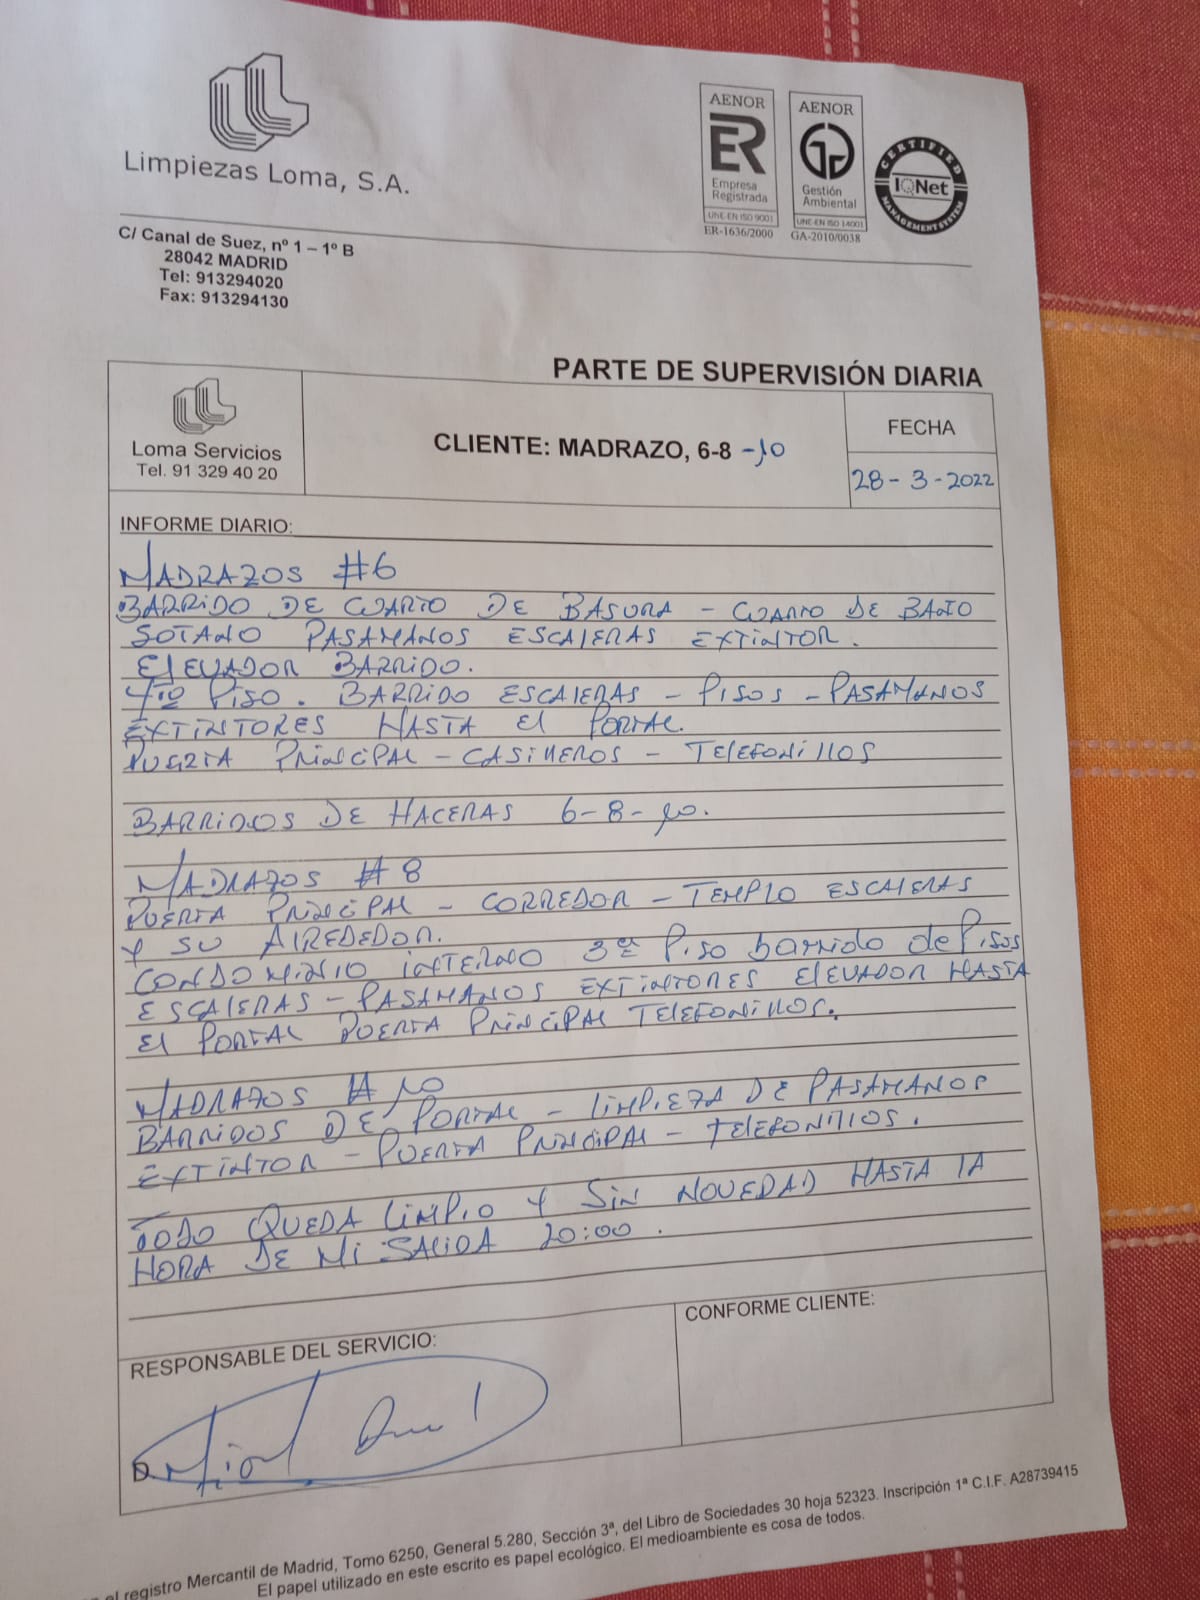 Limpiezas Loma, S.A.
AENOR
ER
Empresa
Registrada
UNE-EN ISO 9001
ER-1636/2000
AENOR
Gestión
Ambiental
UNE-EN ISO 14001
GA-2010/0038
CERTIFIED
IQNet
MANAGEMENT SYSTEM
C/ Canal de Suez, nº 1 – 1º B
28042 MADRID
Tel: 913294020
Fax: 913294130
PARTE DE SUPERVISIÓN DIARIA
Loma Servicios
Tel. 91 329 40 20
CLIENTE: MADRAZO, 6-8 -10
FECHA
28 - 3 - 2022
INFORME DIARIO:
MADRAZOS #6
BARRIDO DE CUARTO DE BASURA - CUARTO DE BAÑO
SOTANO PASAMANOS ESCALERAS EXTINTOR.
ELEVADOR BARRIDO.
4to PISO. BARRIDO ESCALERAS - PISOS - PASAMANOS
EXTINTORES HASTA El PORTAL.
PUERTA PRINCIPAL - CASILLEROS - TELEFONILLOS
BARRIDOS DE HACERAS 6-8-10.
MADRAZOS #8
PUERTA PRINCIPAL - CORREDOR - TEMPLO ESCALERAS
Y SU ALREDEDOR.
CONDOMINIO INTERNO 3er PISO barrido de PISOS
ESCALERAS - PASAMANOS EXTINTORES ELEVADOR HASTA
El PORTAL PUERTA PRINCIPAL TELEFONILLOS.
MADRAZOS #10
BARRIDOS DE PORTAL - LIMPIEZA DE PASAMANOS
EXTINTOR - PUERTA PRINCIPAL - TELEFONILLOS.
TODO QUEDA LIMPIO Y SIN NOVEDAD HASTA LA
HORA DE MI SALIDA 20:00.
RESPONSABLE DEL SERVICIO:
CONFORME CLIENTE:
D.
el registro Mercantil de Madrid, Tomo 6250, General 5.280, Sección 3ª, del Libro de Sociedades 30 hoja 52323. Inscripción 1ª C.I.F. A28739415
El papel utilizado en este escrito es papel ecológico. El medioambiente es cosa de todos.